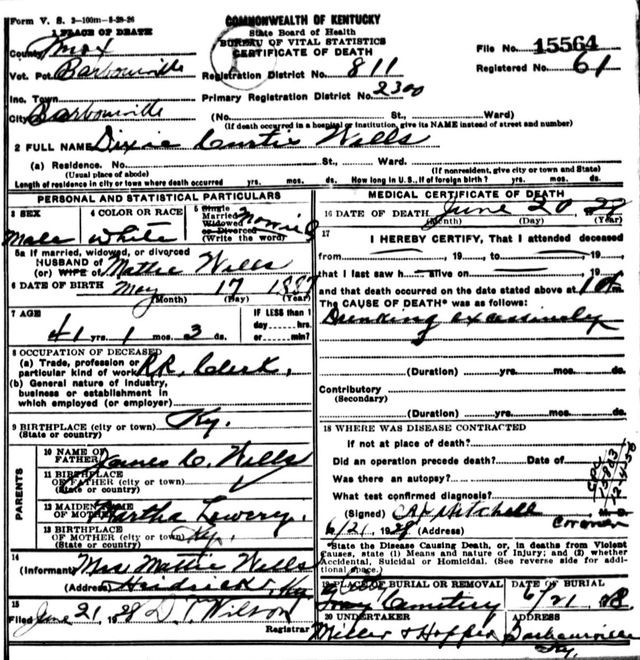 Form V. S. 3-100m-5-28-26
COMMONWEALTH OF KENTUCKY
State Board of Health
BUREAU OF VITAL STATISTICS
CERTIFICATE OF DEATH
1 PLACE OF DEATH
County Knox
File No. 15564
Vot. Pct. Barbourville
Registration District No. 811
Registered No. 61
Inc. Town
Primary Registration District No. 2300
City Barbourville
(No. St., Ward)
(If death occurred in a hospital or institution, give its NAME instead of street and number)
2 FULL NAME Dixie Curtis Wells
(a) Residence. No. St., Ward.
(Usual place of abode) (If nonresident, give city or town and State)
Length of residence in city or town where death occurred yrs. mos. ds. How long in U. S., if of foreign birth? yrs. mos. ds.
PERSONAL AND STATISTICAL PARTICULARS
3 SEX
Male
4 COLOR OR RACE
White
5 Single
Married
Widowed
or Divorced
(Write the word)
Married
5a If married, widowed, or divorced
HUSBAND OF
(or) WIFE OF Mattie Wells
6 DATE OF BIRTH May 17 1887
(Month) (Day) (Year)
7 AGE
41 yrs. 1 mos. 3 ds.
IF LESS than 1
day hrs.
or min.?
8 OCCUPATION OF DECEASED
(a) Trade, profession or
particular kind of work R.R. Clerk.
(b) General nature of industry,
business or establishment in
which employed (or employer)
9 BIRTHPLACE (city or town) Ky.
(State or country)
PARENTS
10 NAME OF
FATHER James C. Wells
11 BIRTHPLACE
OF FATHER (city or town)
(State or country)
12 MAIDEN NAME
OF MOTHER Martha Lowery.
13 BIRTHPLACE
OF MOTHER (city or town) Ky.
(State or country)
14
(Informant) Mrs. Mattie Wells
(Address) Heidrick, Ky
15
Filed June 21 1928 D. T. Wilson
Registrar
MEDICAL CERTIFICATE OF DEATH
16 DATE OF DEATH June 20, 1928
(Month) (Day) (Year)
17
I HEREBY CERTIFY, That I attended deceased
from , 19 , to , 19
that I last saw h alive on , 19
and that death occurred on the date stated above at m.
The CAUSE OF DEATH* was as follows:
Drinking excessively
(Duration) yrs. mos. ds.
Contributory
(Secondary)
(Duration) yrs. mos. ds.
18 WHERE WAS DISEASE CONTRACTED
If not at place of death?
Did an operation precede death? Date of
Was there an autopsy?
What test confirmed diagnosis?
(Signed) Mitchell M. D.
Coroner
6/21 1928 (Address)
*State the Disease Causing Death, or, in deaths from Violent
Causes, state (1) Means and nature of Injury; and (2) whether
Accidental, Suicidal or Homicidal. (See reverse side for addi-
tional space.)
19 PLACE OF BURIAL OR REMOVAL
Cemetery
DATE OF BURIAL
6/21 1928
20 UNDERTAKER
Miller & Hopper
ADDRESS
Barbourville
Ky.